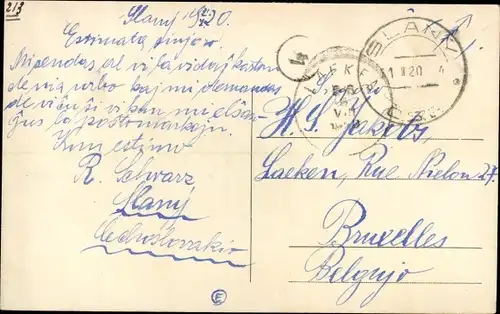 213
Slaný
Estimata sinjoro.
Mi sendas al vi la vidaĵkarton
de nia urbo kaj mi demandas
de vi ĉu ŝi vi kun mi elŝan-
ĝus la poŝtmarkojn.
Kun estimo
R. Schwarz
Slaný
Ĉeĥoslovakio
4
SLANÝ
H. S. Jakobs,
Laeken, Rue Stielon 27.
Bruxelles
Belgujo
E